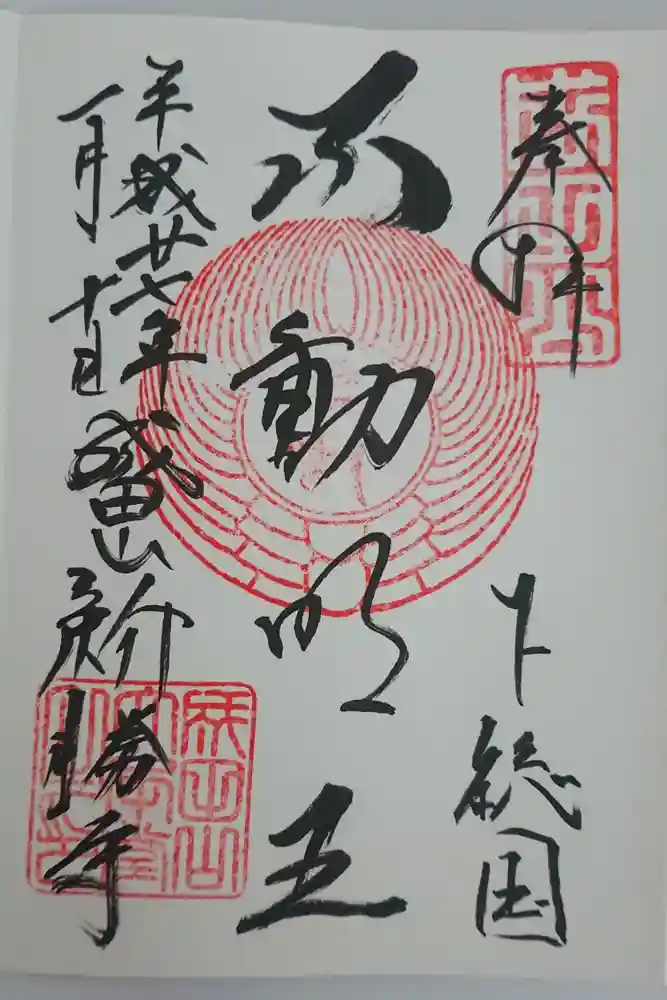 奉拝
下総国
不動明王
平成廿七年
一月十日
成田山
新勝寺
成田山